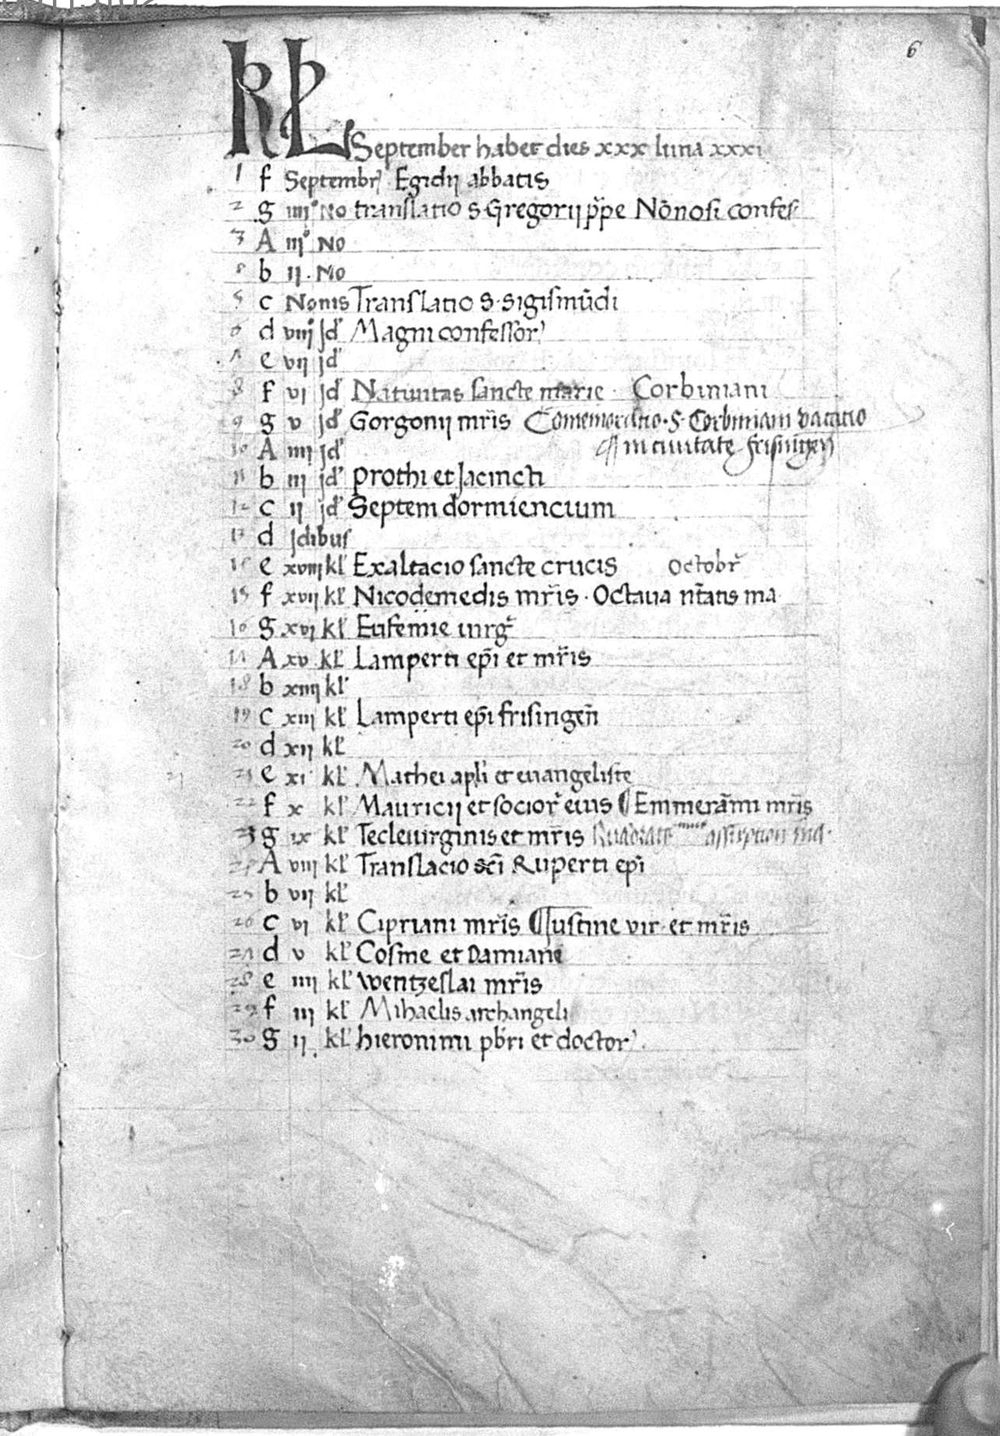 6
KL September habet dies xxx luna xxxi
1 f Septembr Egidij abbatis
2 g iiij No translatio S. Gregorij ppe Nōnosi confes
3 A iij No
b ii. No
5 c Nonis Translatio S. Sigismūdi
6 d viij jd Magni confessor
e vij jd
8 f vj jd Natiuitas sancte marie Corbiniani
9 g v jd Gorgonij mr̄is Comemoratio. S. Corbiniani vacatio
10 A iiij jd in ciuitate frisingen̄
11 b iij jd prothi et Jacincti
12 c ij jd Septem dormiencium
13 d jdibus
e xviij kl Exaltacio sancte crucis octobr
15 f xvij kl Nicodemedis mr̄is. Octaua nt̄atis ma
16 g xvj kl Eufemie uirg
A xv kl Lamperti ep̄i et mr̄is
18 b xiiij kl
19 c xiij kl Lamperti ep̄i frisingen̄
20 d xij kl
21 e xi kl Mathei apl̄i et euangeliste
22 f x kl Mauricij et socior eius ¶ Emmerām̄i mr̄is
23 g ix kl Tecle uirginis et mr̄is
A viij kl Translacio sc̄i Ruperti ep̄i
25 b vij kl
26 c vj kl Cipriani mr̄is ¶ Justine vir. et mr̄is
d v kl Cosme et Damiane
28 e iiij kl wentzeslai mr̄is
29 f iij kl Mihaelis archangeli
30 g ij kl hieronimi pb̄ri et doctor